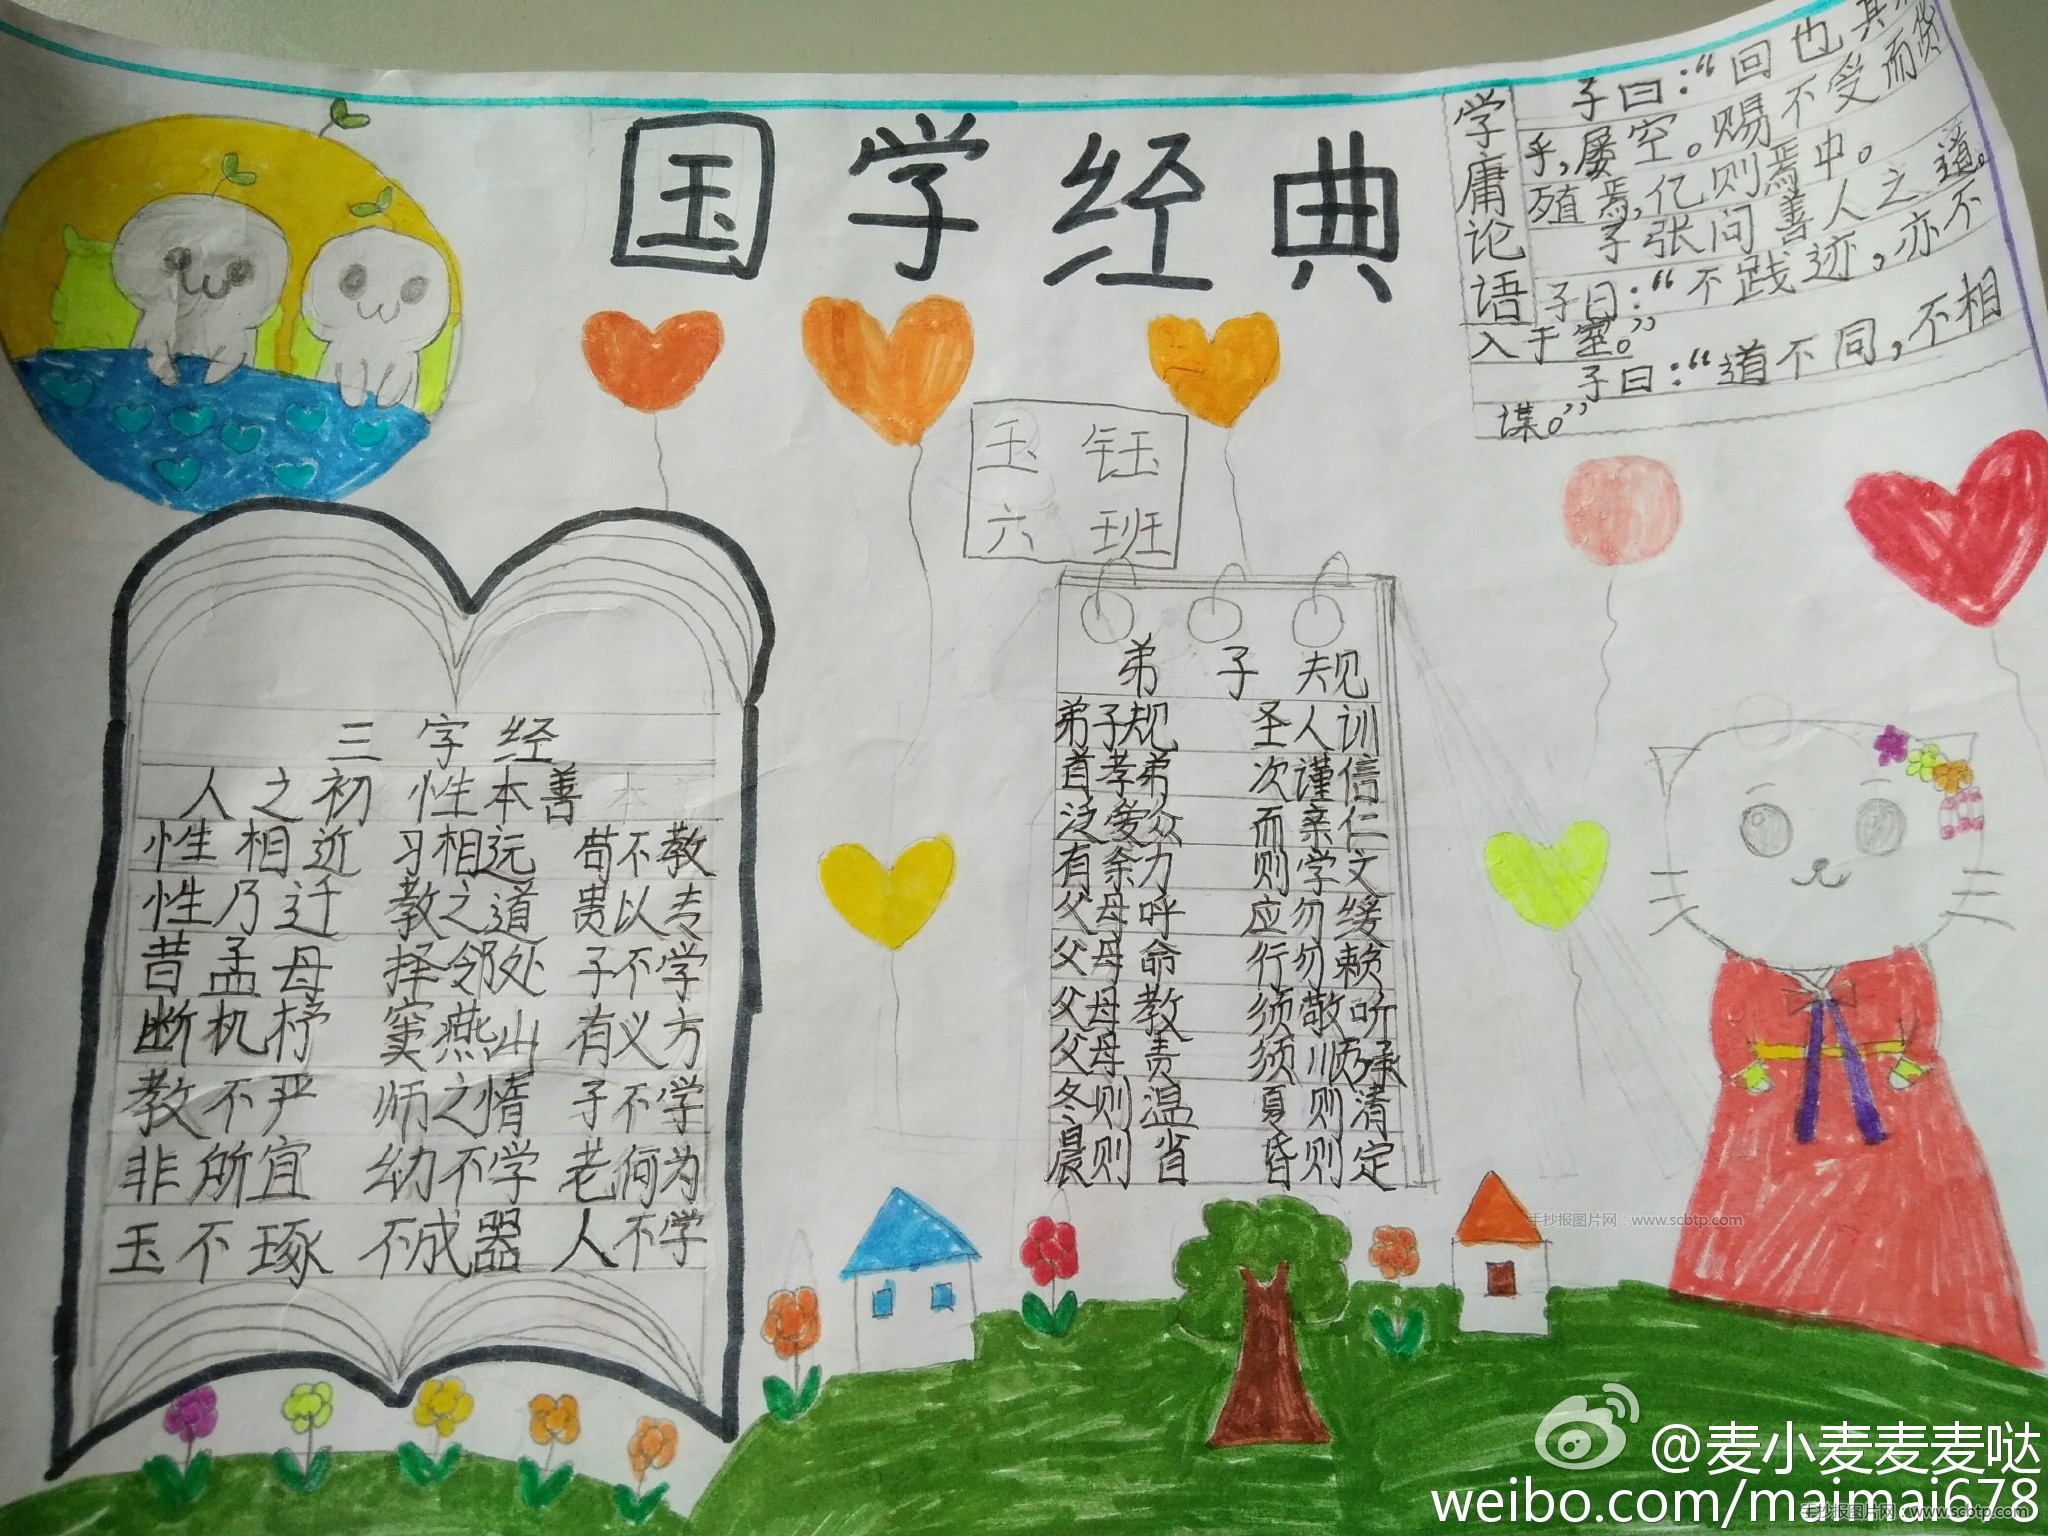 国学经典
学庸论语
子曰:“回也其
乎,屡空。赐不受而货
殖焉,亿则焉中。
子张问善人之道。
子曰:“不践迹,亦不
入于室。”
子曰:“道不同,不相
谋。”
玉 钰
六 班
三字经
人之初 性本善
性相近 习相远 苟不教
性乃迁 教之道 贵以专
昔孟母 择邻处 子不学
断机杼 窦燕山 有义方
教不严 师之惰 子不学
非所宜 幼不学 老何为
玉不琢 不成器 人不学
弟子规
弟子规 圣人训
首孝弟 次谨信
泛爱众 而亲仁
有余力 则学文
父母呼 应勿缓
父母命 行勿赖
父母教 须敬听
父母责 须顺承
冬则温 夏则清
晨则省 昏则定
手抄报图片网:www.scbtp.com
@麦小麦麦麦哒
weibo.com/maimai678
手抄报图片网:www.scbtp.com